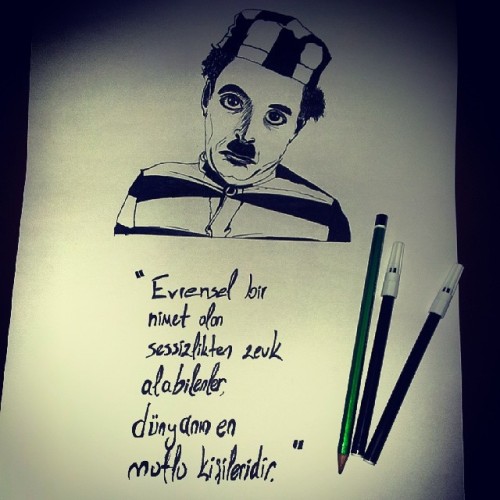 "Evrensel bir
nimet olan
sessizlikten zevk
alabilenler,
dünyanın en
mutlu kişileridir."